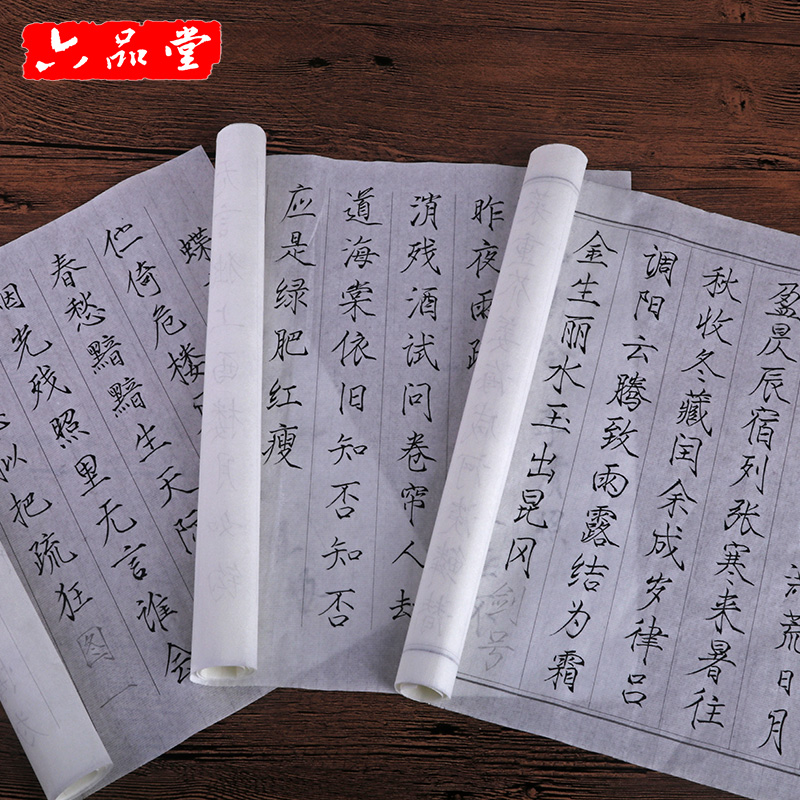 六品堂
荒日月
盈昃辰宿列张寒来暑往
秋收冬藏闰余成岁律吕
调阳云腾致雨露结为霜
金生丽水玉出昆冈
剑号
昨夜雨疏
消残酒试问卷帘人
道海棠依旧知否知否
应是绿肥红瘦
蝶
伫倚危楼
春愁黯黯生天际
烟光残照里无言谁会
拟把疏狂图一